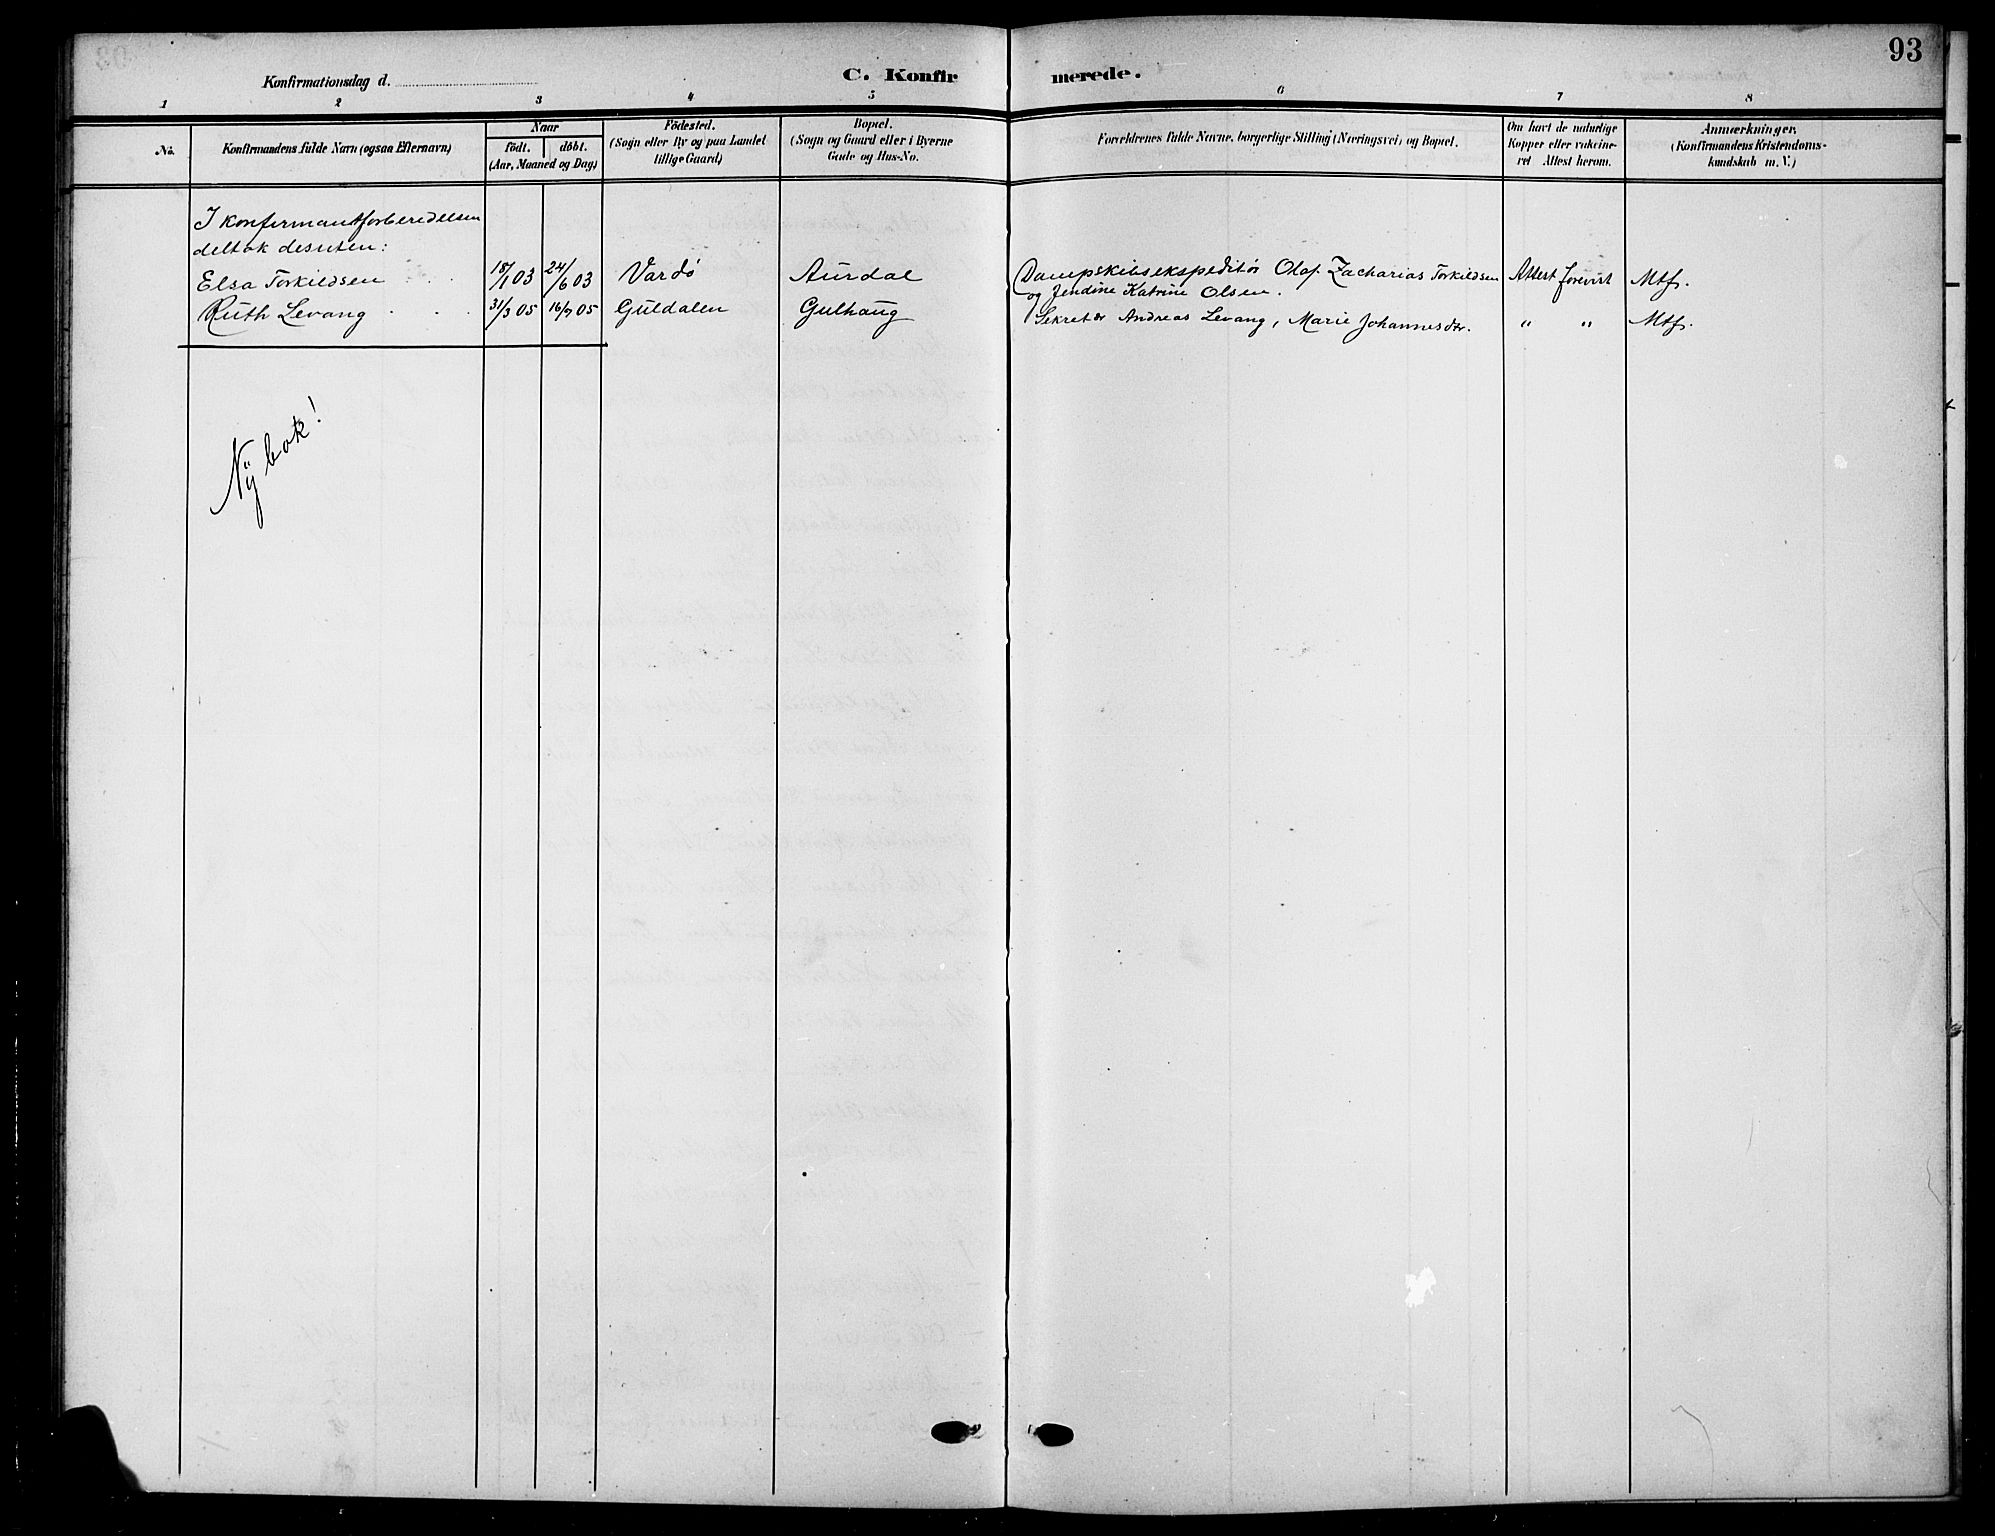 93
Konfirmationsdag d.
C. Konfirmerede.
1 2 3 4 5 6 7 8
No.
Konfirmandens fulde Navn (ogsaa Efternavn)
Naar
födt. döbt.
(Aar, Maaned og Dag)
Födested.
(Sogn eller By og paa Landet
tillige Gaard)
Bopæl.
(Sogn og Gaard eller i Byerne
Gade og Hus-No.
Forældrenes fulde Navne, borgerlige Stilling (Næringsvei) og Bopæl.
Om havt de naturlige
Kopper eller vakcine-
ret Attest herom.
Anmærkninger.
(Konfirmandens Kristendoms-
kundskab m. V.)
I konfirmantforberedelsen
deltok desuten:
Elsa Torkildsen 18/1 03 24/6 03 Vardö Aurdal Dampskibsekspeditör Olaf Zacharias Torkildsen Attest forevist Mtf.
og Jendine Katrine Olsen.
Ruth Levang 31/3 05 16/7 05 Guldalen Gulhaug Sekretær Andreas Levang, Marie Johannesdtr. " " Mtf.
Ny bok!